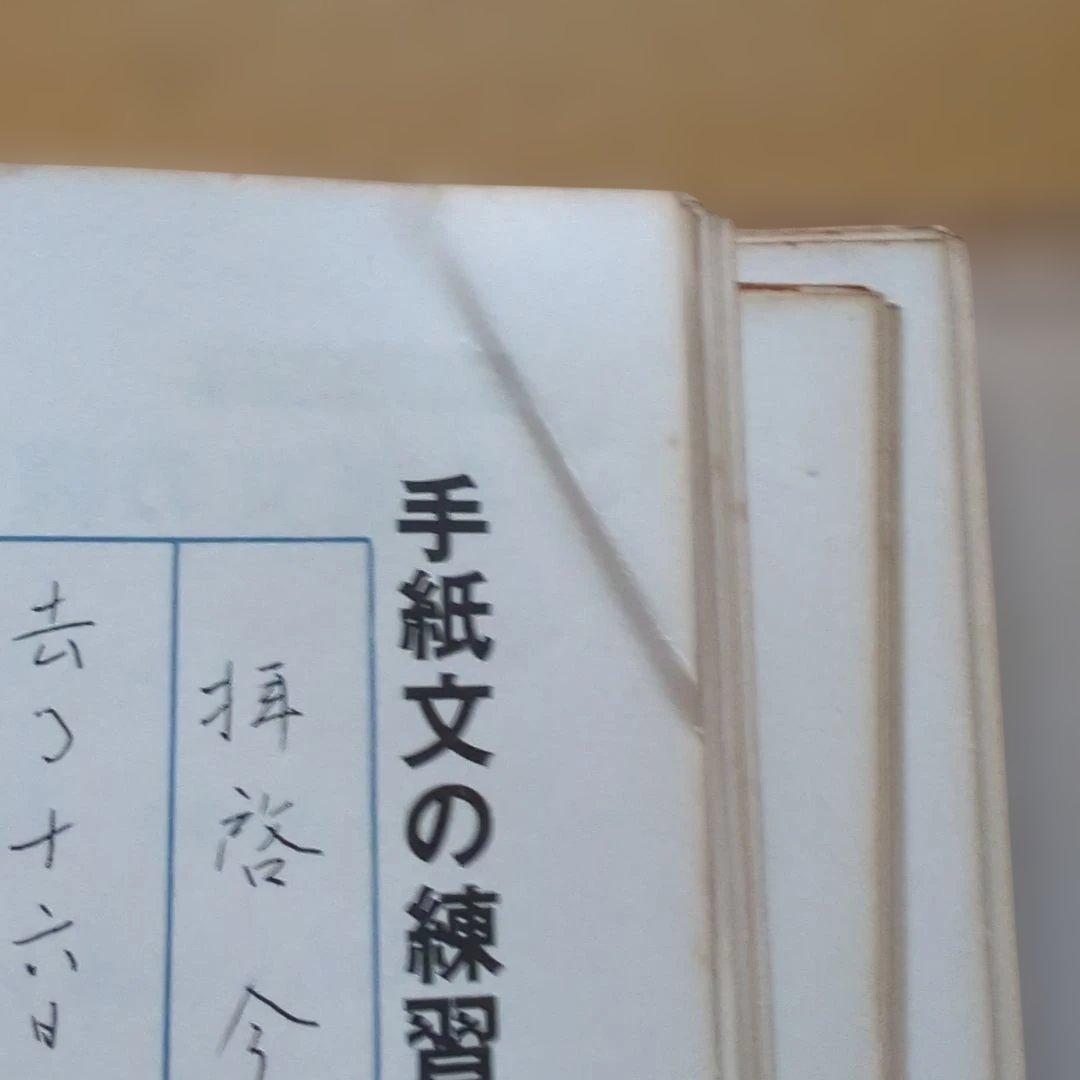 手紙文の練習
拝啓 今
去る十六日